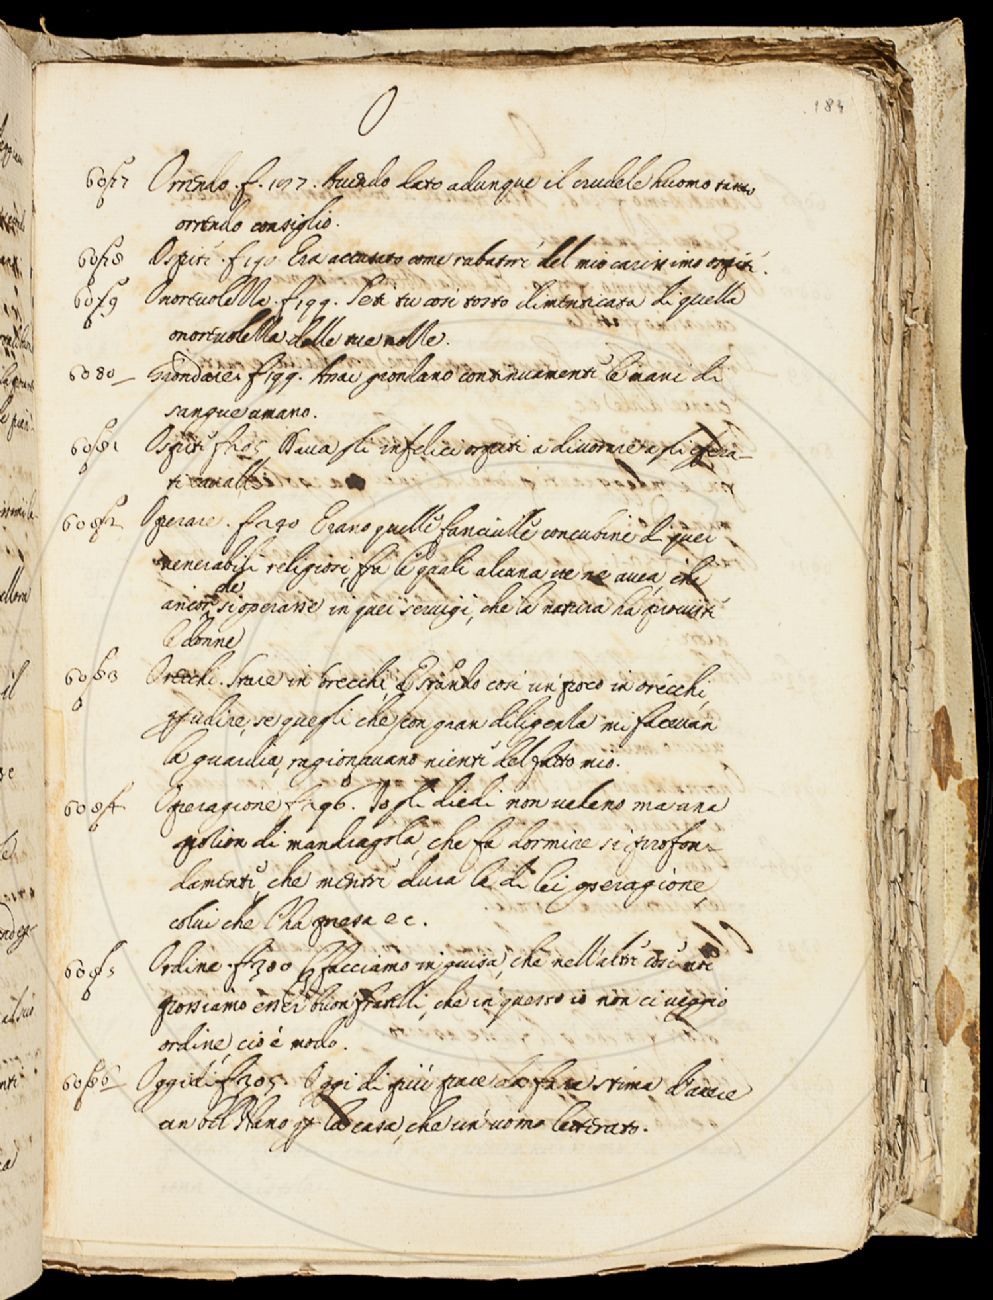 O
184
6077 Orrendo. f. 177. Avendo dato adunque il crudele huomo tanto
orrendo consiglio.
6078 Ospiti. f 190 Era accusato come rubatore del mio carissimo ospite.
6079 Onorevolella. f. 199. Seti tu così tosto dimenticata di quella
onorevolella delle tue nolle.
6080 Grondare. f 199. Anzi grondano continuamente le mani di
sangue umano.
6081 Ospiti f 205 Dava gli infelici ospiti a divorare a gli
ti cavalli
6082 Operare. f 290 Erano quelle fanciulle concubine di quei
venerabili religiosi, fra le quali alcuna ve ne avea, che
ancor che si operasse in quei servigi, che la natura ha proviste
le donne
6083 Orecchi. Stare in orecchi, e stando così un poco in orecchi,
per udire, se quegli che con gran diligenza mi facevan
la guardia, ragionavano niente del fatto mio.
6084 Operagione f 296. Io gli diedi non veleno ma una
potion di mandragola, che fa dormire si profon-
damente, che mentre dura la di lei operagione,
colui che l'ha presa ec.
6085 Ordine. f 300 facciamo in guisa, che nell'altre cose noi
possiamo esser buon fratelli, che in questo io non ci veggio
ordine, cio è modo.
6086 Oggi dì f 305. Oggi di più pare da fare stima d'avere
un bel per la casa, che un uomo letterato.